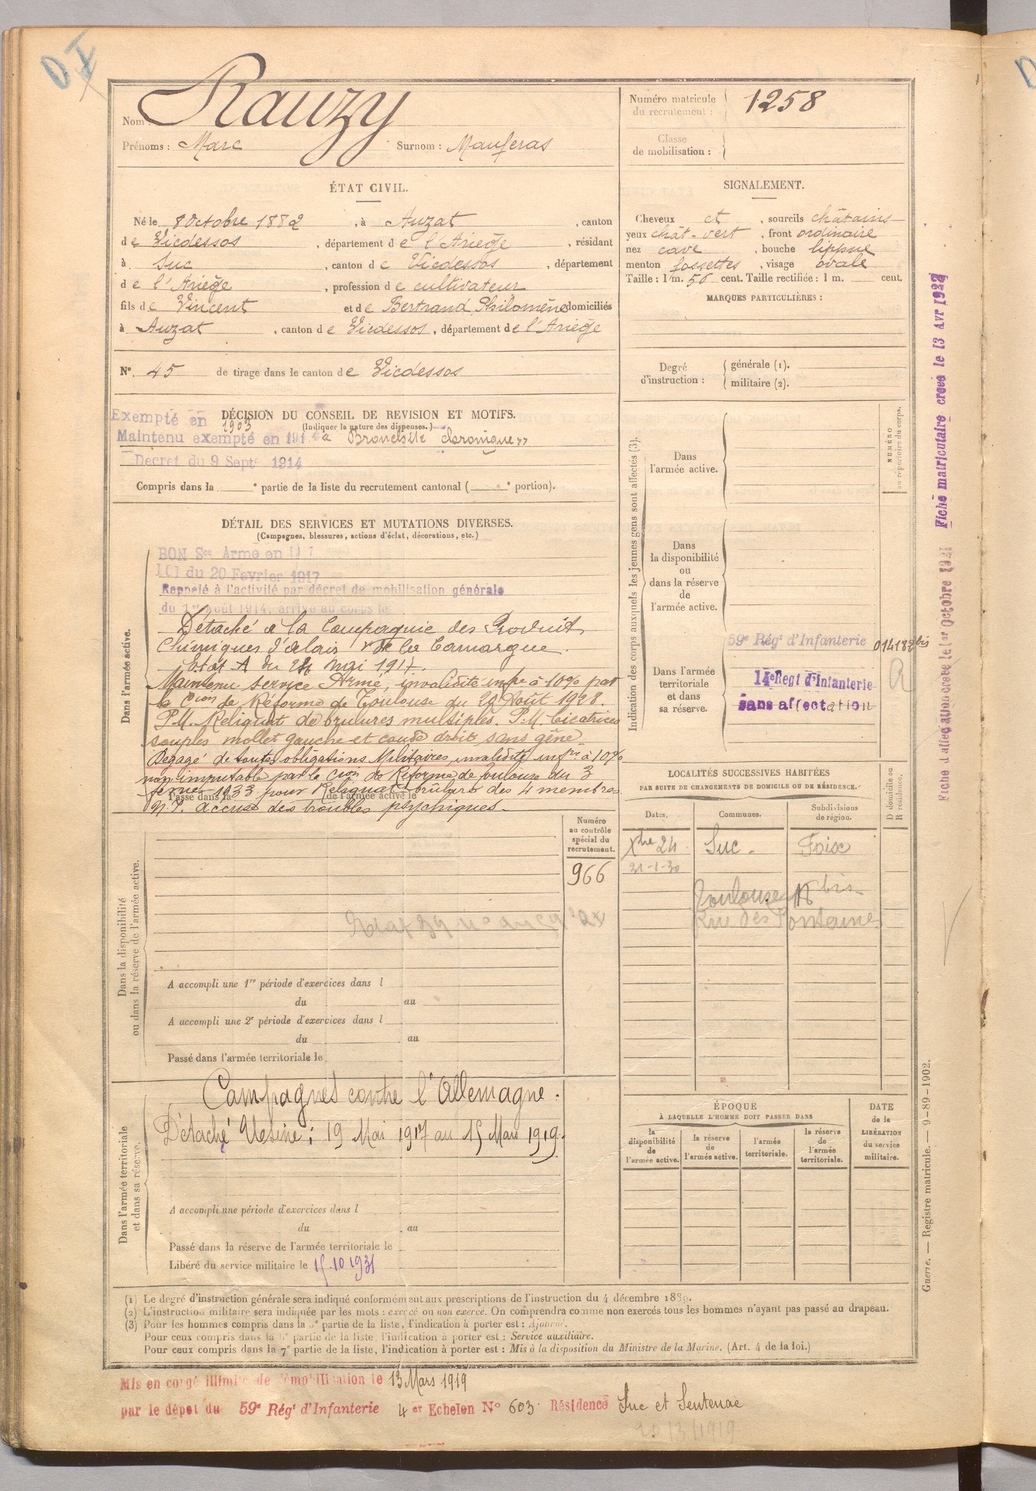 DI
Nom : Rauzy
Prénoms : Marc Surnom : Mauferas
Numéro matricule
du recrutement : 1258
Classe
de mobilisation :
ÉTAT CIVIL.
Né le 8 Octobre 1882, à Auzat, canton
de Vicdessos, département de l'Ariège, résidant
à Suc, canton de Vicdessos, département
de l'Ariège, profession de cultivateur
fils de Vincent et de Bertrand Philomène domiciliés
à Auzat, canton de Vicdessos, département de l'Ariège
N° 45 de tirage dans le canton de Vicdessos
SIGNALEMENT.
Cheveux et, sourcils châtains
yeux chât-vert, front ordinaire
nez cave, bouche
menton fossettes, visage ovale
Taille : 1 m. 56 cent. Taille rectifiée : 1 m. cent.
MARQUES PARTICULIÈRES :
Degré
d'instruction :
générale (1).
militaire (2).
DÉCISION DU CONSEIL DE REVISION ET MOTIFS.
(Indiquer la nature des dispenses.)
Exempté en 1903
Maintenu exempté en 191 " Bronchite chronique "
Décret du 9 Sept 1914
Compris dans la e partie de la liste du recrutement cantonal ( e portion).
DÉTAIL DES SERVICES ET MUTATIONS DIVERSES.
(Campagnes, blessures, actions d'éclat, décorations, etc.)
Dans l'armée active.
BON Sce Armé en 1917
LOI du 20 Février 1917
Rappelé à l'activité par décret de mobilisation générale
du 1er Août 1914, arrivé au corps le
Détaché à la Compagnie des Produits
Chimiques d'Alais et de la Camargue.
État A du 24 mai 1917.
Maintenu service Armé, invalidité infre à 10% par
la Cion de Réforme de Toulouse du 22 Août 1928.
P.M. Reliquat de brulures multiples. P.M. Cicatrices
souples mollet gauche et coude droit, sans gêne.
Dégagé de toutes obligations Militaires, invalidité infre à 10%
non imputable par la Cion de Réforme de Toulouse du 3
février 1933 pour Reliquat brulures des 4 membres
N° 2° accuse des troubles psychiques.
Passé dans la de l'armée active le
Indication des corps auxquels les jeunes gens sont affectés (3).
NUMÉRO
au répertoire du corps.
Dans
l'armée active.
Dans
la disponibilité
ou
dans la réserve
de
l'armée active.
Dans l'armée
territoriale
et dans
sa réserve.
59e Régt d'Infanterie 014182 bis
14e Regt d'Infanterie
sans affectation
A
Fiche d'affectation créée le 1er Octobre 1921 Fiche matriculaire créée le 13 Avr 1927
LOCALITÉS SUCCESSIVES HABITÉES
PAR SUITE DE CHANGEMENTS DE DOMICILE OU DE RÉSIDENCE.
D domicile ou
R résidence.
Dates. Communes. Subdivisions
de région.
Xbre 24 Suc. Foix
21-1-30
Toulouse bis
Rue des Fontaines
Dans la disponibilité
ou dans la réserve de l'armée active.
Numéro
au contrôle
spécial du
recrutement.
966
A accompli une 1re période d'exercices dans l
du au
A accompli une 2e période d'exercices dans l
du au
Passé dans l'armée territoriale le
Dans l'armée territoriale
et dans sa réserve.
Campagnes contre l'Allemagne.
Détaché Usine : 19 Mai 1917 au 15 Mars 1919.
A accompli une période d'exercices dans l
du au
Passé dans la réserve de l'armée territoriale le
Libéré du service militaire le 15.10 1931
ÉPOQUE
À LAQUELLE L'HOMME DOIT PASSER DANS
la
disponibilité
de
l'armée active.
la réserve
de
l'armée active.
l'armée
territoriale.
la réserve
de
l'armée
territoriale.
DATE
de la
LIBÉRATION
du service
militaire.
Guerre. — Registre matricule. — 9-89-1902.
(1) Le degré d'instruction générale sera indiqué conformément aux prescriptions de l'instruction du 4 décembre 1889.
(2) L'instruction militaire sera indiquée par les mots : exercé ou non exercé. On comprendra comme non exercés tous les hommes n'ayant pas passé au drapeau.
(3) Pour les hommes compris dans la 5e partie de la liste, l'indication à porter est : Ajourné.
Pour ceux compris dans la 6e partie de la liste, l'indication à porter est : Service auxiliaire.
Pour ceux compris dans la 7e partie de la liste, l'indication à porter est : Mis à la disposition du Ministre de la Marine. (Art. 4 de la loi.)
Mis en congé illimité de démobilisation le 13 Mars 1919
par le dépôt du 59e Régt d'Infanterie 4 e Echelon N° 603 Résidence Suc et Sentenac
20/3/1919